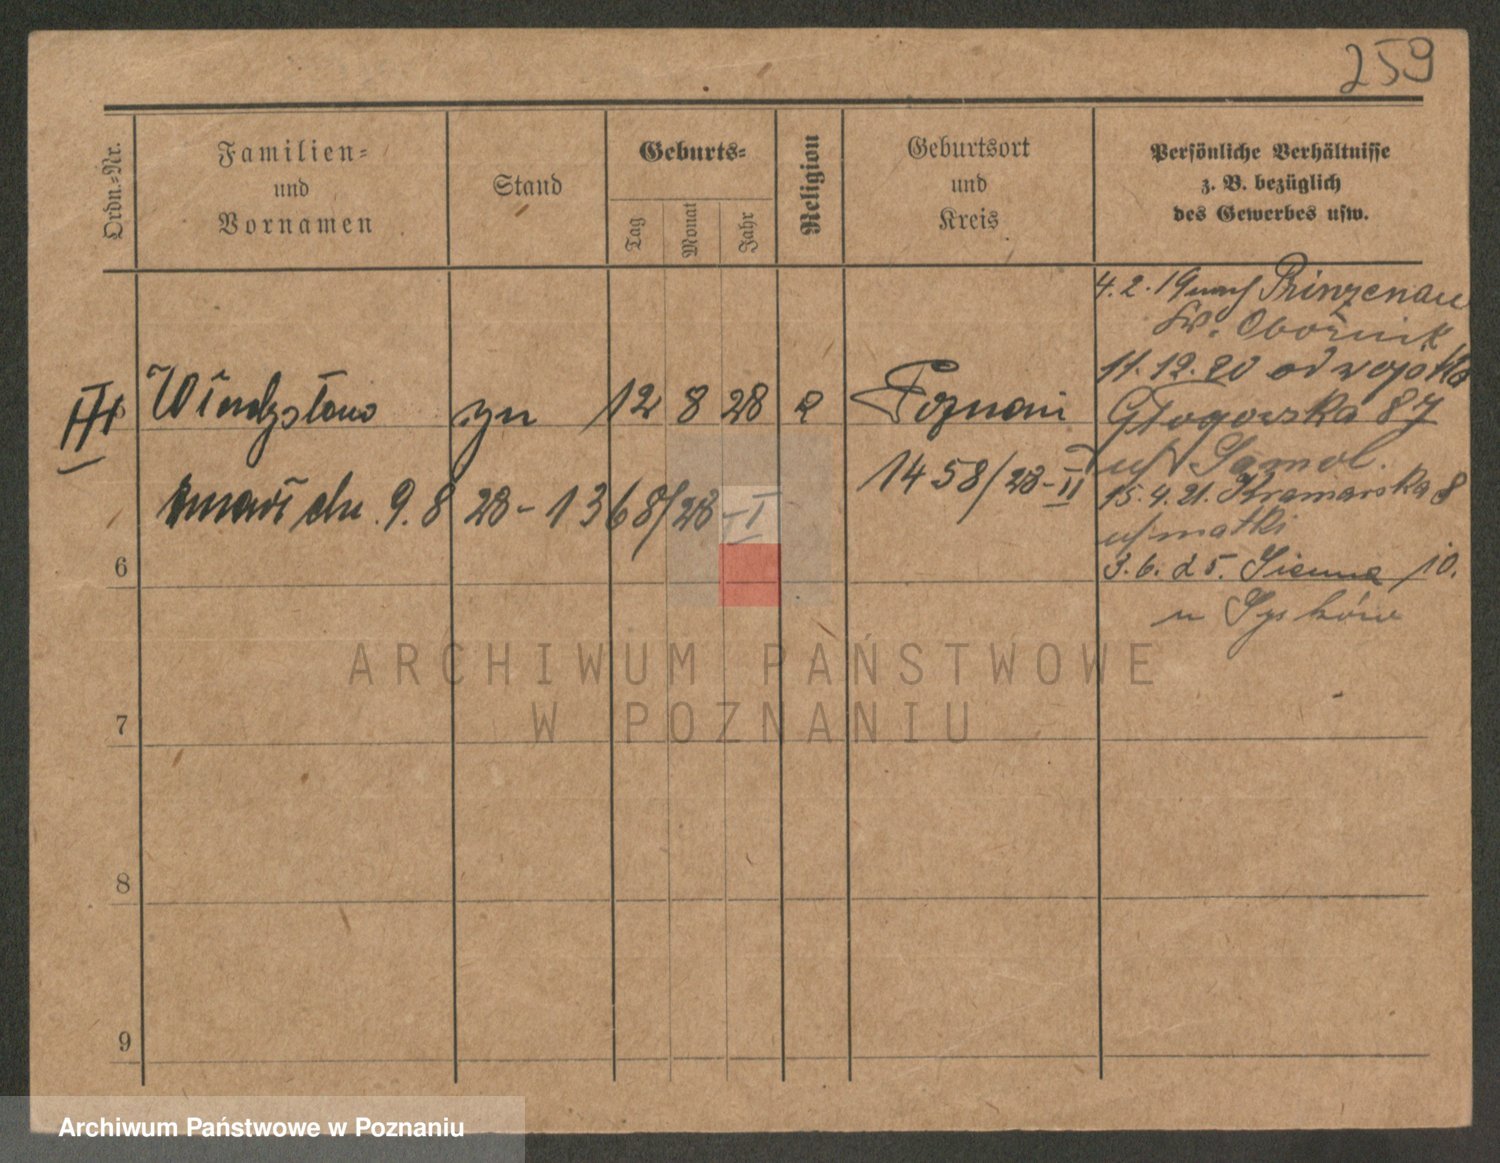 259
Ordn.=Nr.
Familien=
und
Vornamen
Stand
Geburts=
Tag
Monat
Jahr
Religion
Geburtsort
und
Kreis
Persönliche Verhältnisse
z. B. bezüglich
des Gewerbes usw.
4.2.19 nach Prinzenau
Kr. Obornik
11.12.20 od wojska
III Władysław syn 12 8 28 Poznań
Głogowska 87
u/ Samol.
1458/28-II
zmarł dn. 9.8 28 - 1368/28 - I
15.4.21. Kramarska 8
u/matki
3.6. 25. Sienna 10.
6
7
8
9
ARCHIWUM PAŃSTWOWE
W POZNANIU
Archiwum Państwowe w Poznaniu